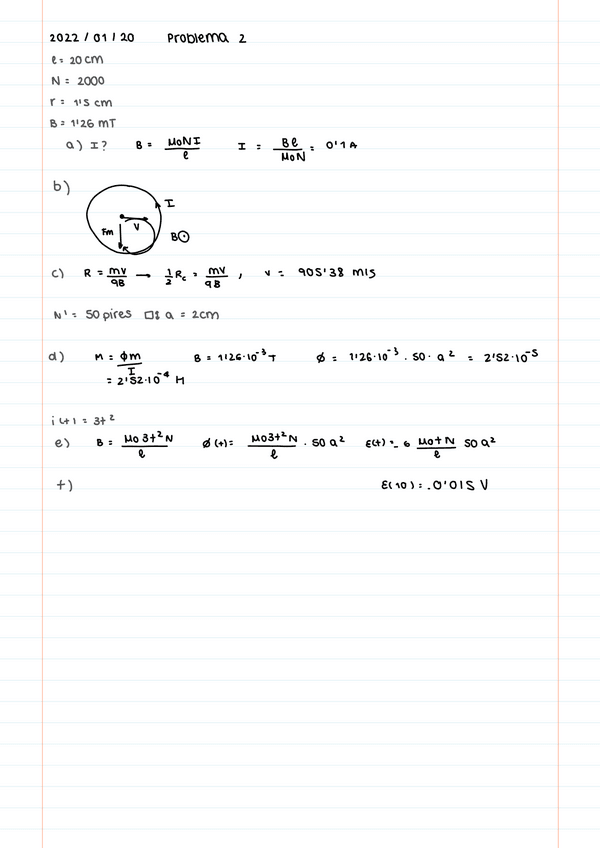 2022 / 01 / 20 Problema 2
l = 20 cm
N = 2000
r = 1's cm
B = 1'26 mT
a) I? B = μoNI/l I = Bl/μoN = 0'1 A
b)
I
Fm V
B⊙
c) R = mv/qB → 1/2 Rc = mv/qB , v = 905'38 m/s
N' = 50 pires □s a = 2cm
d) M = ϕm/I B = 1'126·10⁻³ T Ø = 1'26·10⁻³ · 50 · a² = 2'52·10⁻⁵
= 2'52·10⁻⁴ H
i(t) = 3t²
e) B = μo 3t² N/l Ø(t) = μo3t²N/l · 50 a² ε(t) = - 6 μotN/l 50 a²
f) ε(10) = -0'015 V